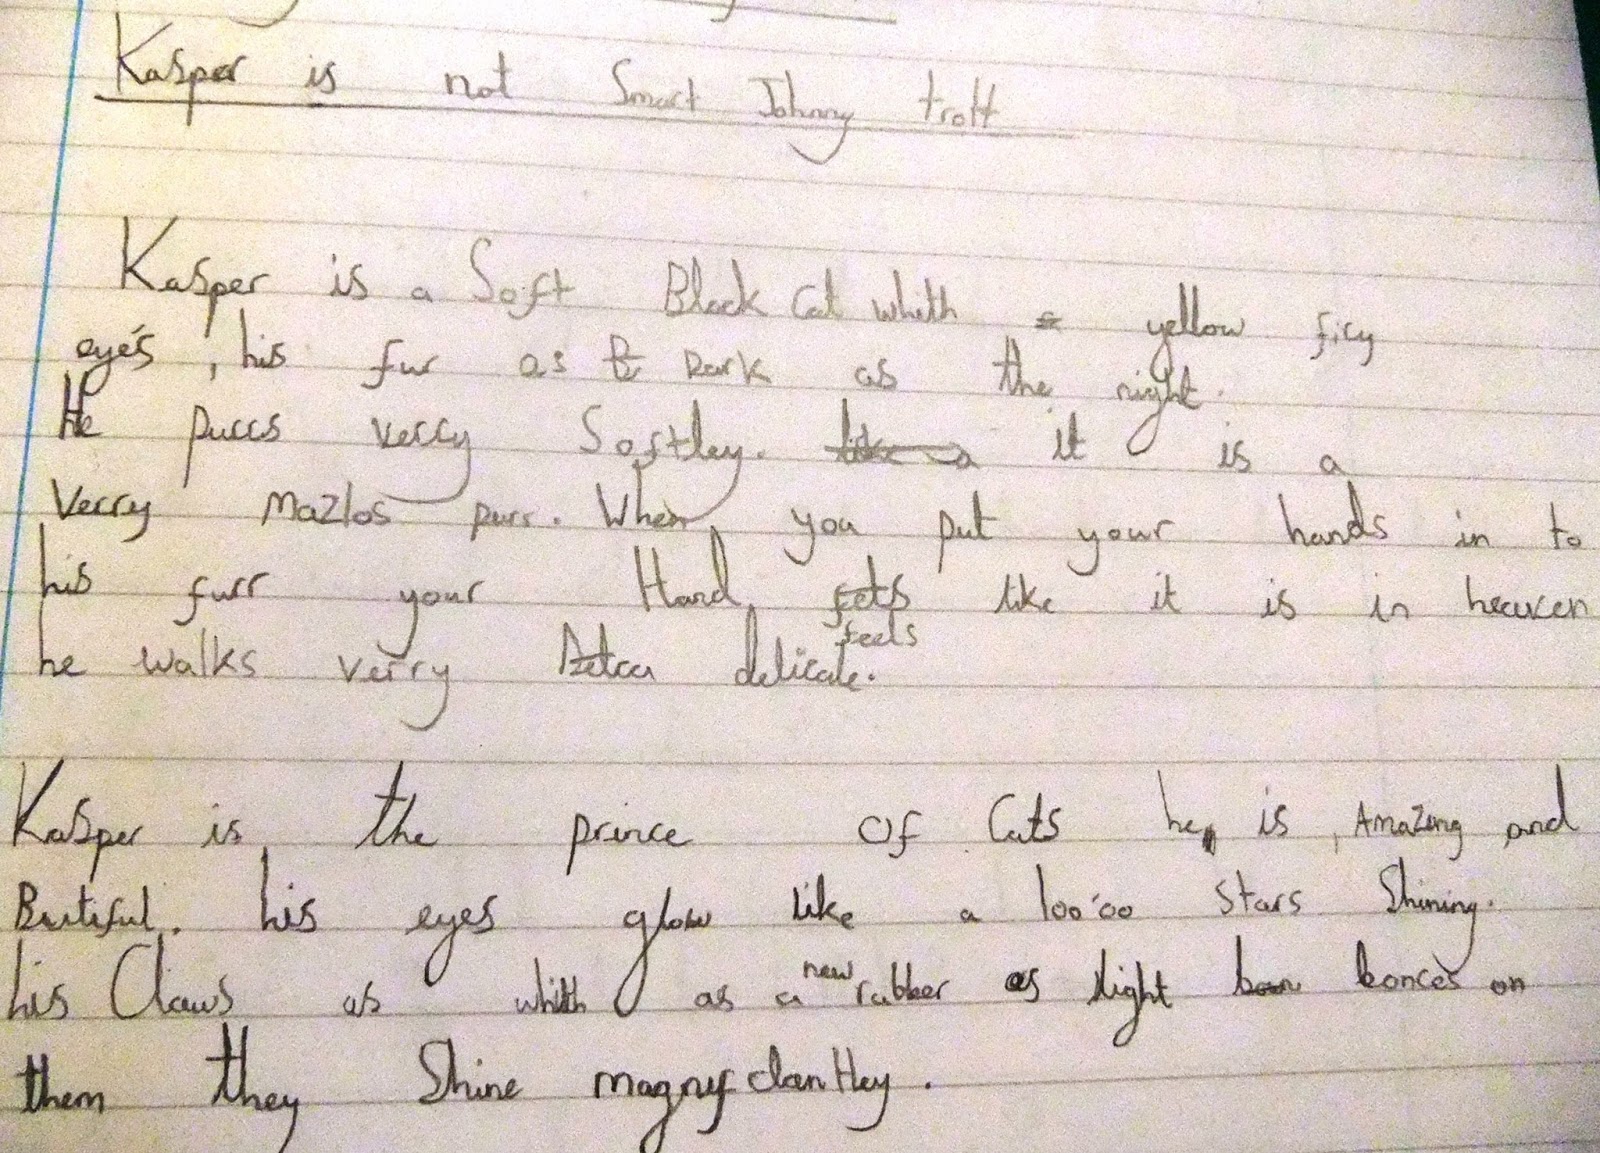 Kasper is not Smart Johnny trott
Kasper is a Soft Black Cat whith yellow firy
eye's, his fur as Dark as the night.
He purrs verry Softley. it is a
Verry Mazlos purr. When you put your hands in to
his furr your Hand, feels like it is in heaven
he walks verry delicate.
Kasper is the prince Of Cats he is, Amazing and
Beutiful. his eyes glow like a 100'00 stars Shining.
his Claws as whith as a new rubber as light bonces on
them they Shine magnyfclantley.